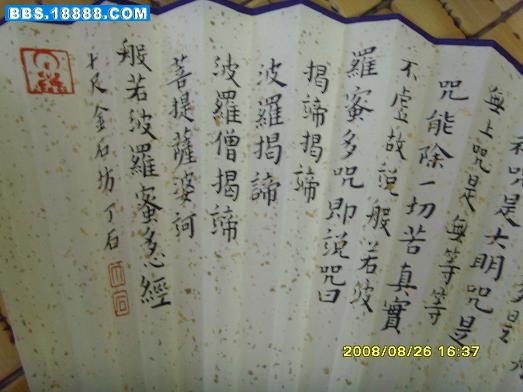 多是
咒是大明咒是
無上咒是無等等
咒能除一切苦真實
不虛故說般若波
羅蜜多咒即說咒曰
揭諦揭諦
波羅揭諦
波羅僧揭諦
菩提薩婆訶
般若波羅蜜多心經
金石坊丁石
BBS.18888.COM
2008/08/26 16:37